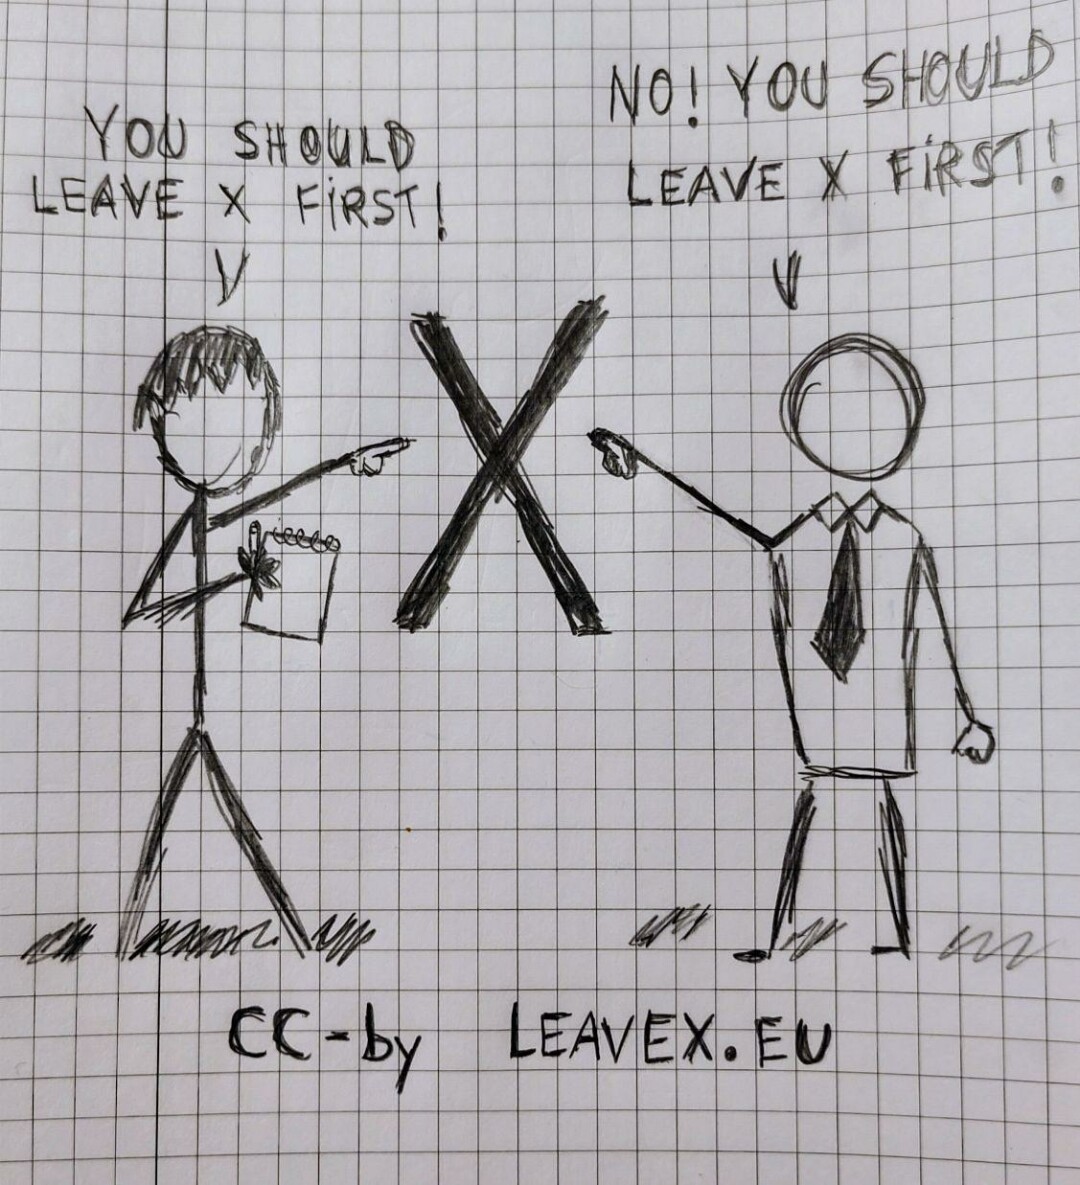 YOU SHOULD
LEAVE X FIRST!
NO! YOU SHOULD
LEAVE X FIRST!
X
CC-by LEAVEX.EU